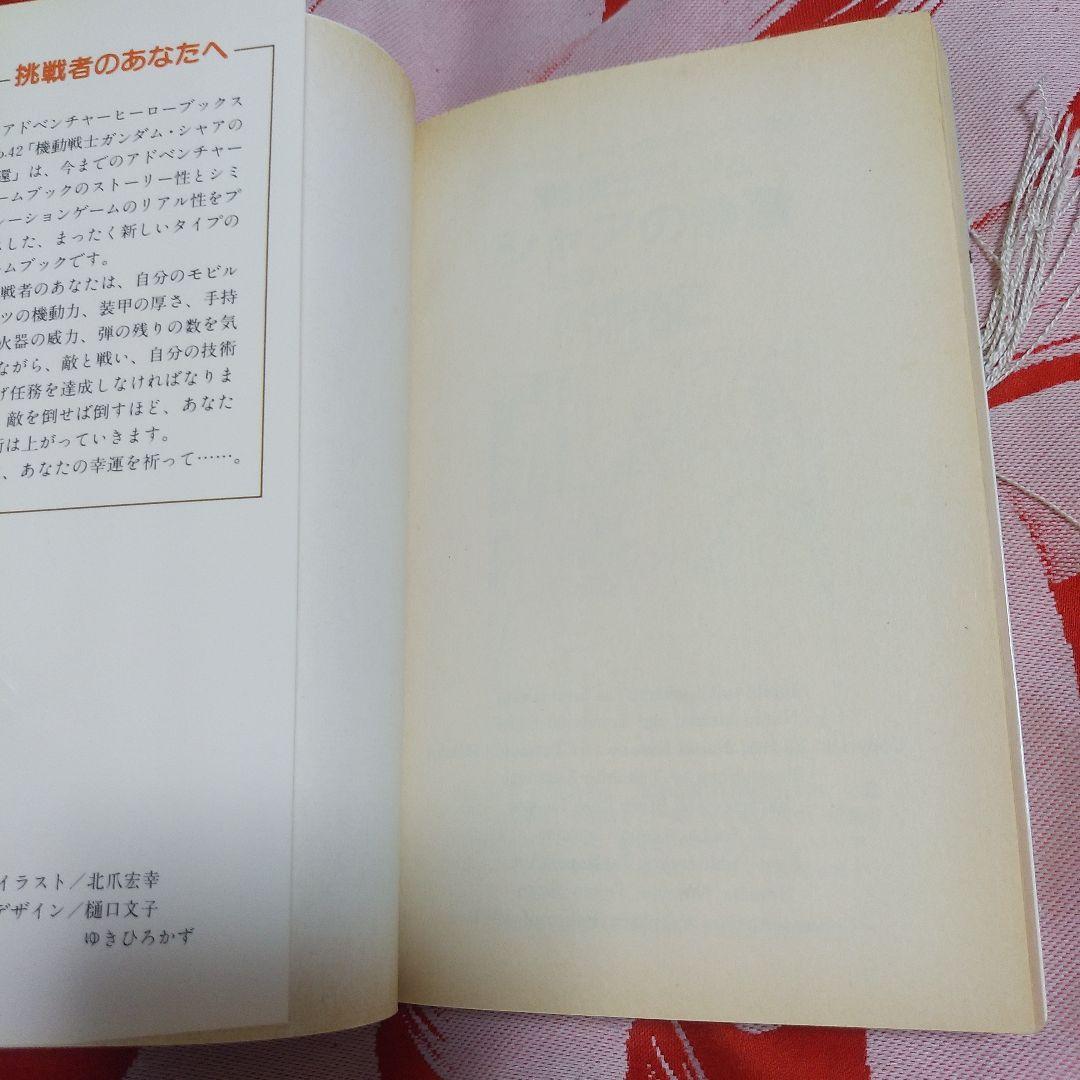 挑戦者のあなたへ
アドベンチャーヒーローブックス
o.42「機動戦士ガンダム・シャアの
還」は、今までのアドベンチャー
ームブックのストーリー性とシミ
レーションゲームのリアル性をプ
した、まったく新しいタイプの
ームブックです。
戦者のあなたは、自分のモビル
ツの機動力、装甲の厚さ、手持
火器の威力、弾の残りの数を気
ながら、敵と戦い、自分の技術
げ任務を達成しなければなりま
敵を倒せば倒すほど、あなた
術は上がっていきます。
、あなたの幸運を祈って……。
イラスト／北爪宏幸
デザイン／樋口文子
ゆきひろかず